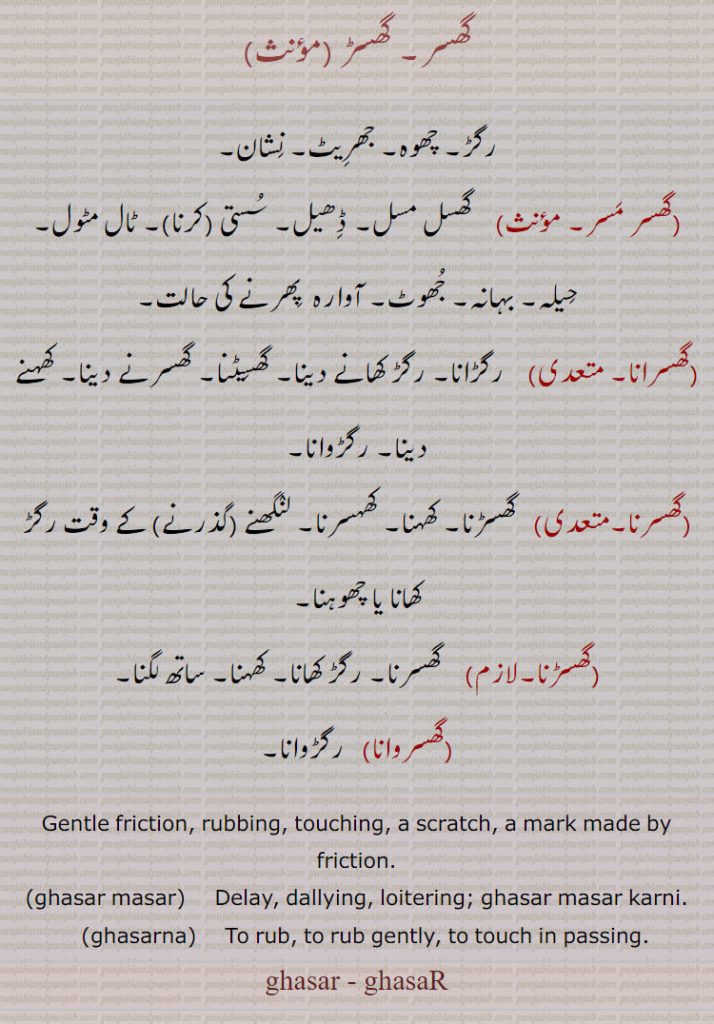 گھسر ۔ گھسڑ (مؤنث)
رگڑ۔ چھوہ۔ جھرِیٹ۔ نِشان۔
(گھسر مَسر ۔ مؤنث) گھسل مسل۔ ڈِھیل۔ سُستی (کرنا)۔ ٹال مٹول۔
حِیلہ۔ بہانہ۔ جُھوٹ۔ آوارہ پِھرنے کی حالت۔
(گھسرانا۔ متعدی) رگڑانا۔ رگڑ کھانے دینا۔ گھسِیٹنا۔ گھسرنے دینا۔ کھہنے
دینا۔ رگڑوانا۔
(گھسرنا۔متعدی) گھسڑنا۔ کھہنا۔ کھہسرنا۔ لنْگھنے (گذرنے) کے وقت رگڑ
کھانا یا چھوہنا۔
(گھسڑنا۔لازم) گھسرنا۔ رگڑ کھانا۔ کھہنا۔ ساتھ لگنا۔
(گھسروانا) رگڑوانا۔
Gentle friction, rubbing, touching, a scratch, a mark made by
friction.
(ghasar masar) Delay, dallying, loitering; ghasar masar karni.
(ghasarna) To rub, to rub gently, to touch in passing.
ghasar - ghasaR